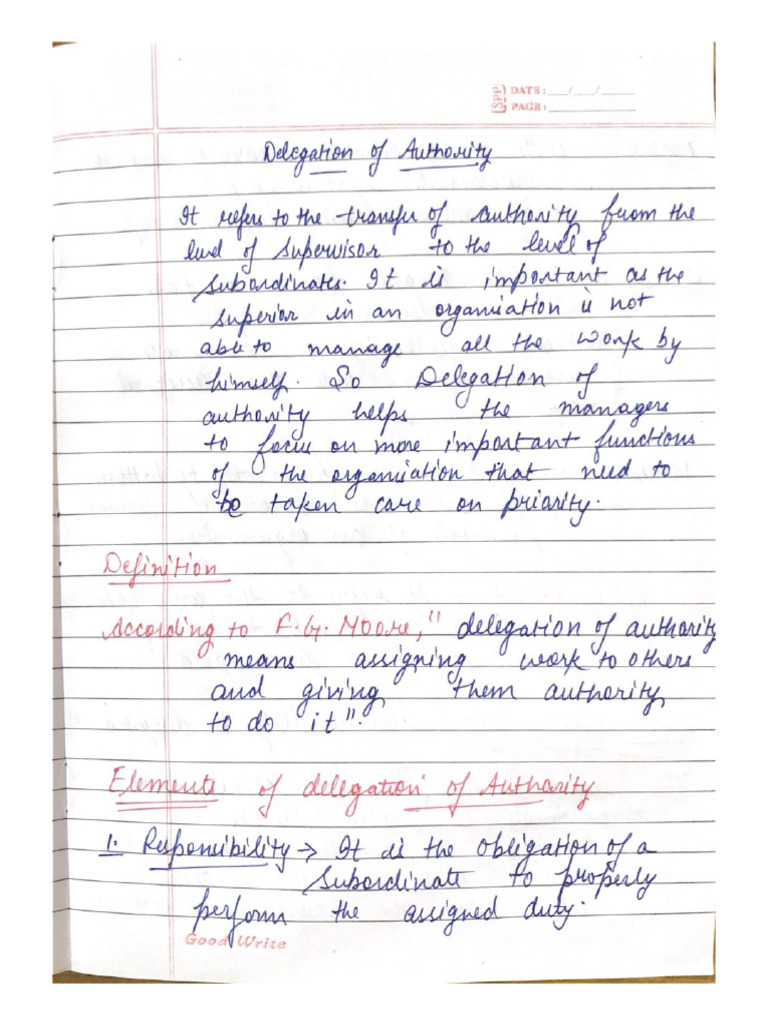 SPP DATE: __/__/____
PAGE: ________
Delegation of Authority
It refers to the transfer of authority from the
level of supervisor to the level of
subordinates. It is important as the
superior in an organisation is not
able to manage all the work by
himself. So Delegation of
authority helps the managers
to focus on more important functions
of the organisation that need to
be taken care on priority.
Definition
According to F.G. Moore, "delegation of authority
means assigning work to others
and giving them authority
to do it".
Elements of delegation of Authority
1. Responsibility → It is the obligation of a
subordinate to properly
perform the assigned duty.
Good Write